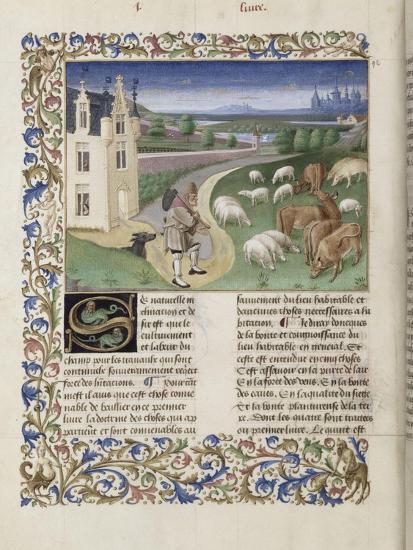 1
liure.
Se naturelle in
clination et de
sir est que le
cultiuement
et labeur du
champ pour les trauaulx qui sont
continuelz souuerainement
force des
mest il auis que cest chose conue
nable de baillier en ce premier
liure la doctrine des choses qui ap
partient et sont conuenables au
sauuement du lieu habitable et
daucunes choses necessaires a lha
bitation. Je diray doncques
de la bonte et congnoissance du
lieu habitable en general. Et
ceste est entendue en cincq choses
Cest assauoir en la purte de lair
En la force des vens. En la bonte
des eaues. En la qualite du siege
Et la bonte plantureuse de la ter
re. Dont les quatre sont traitiees
ou premier liure. Le quint est